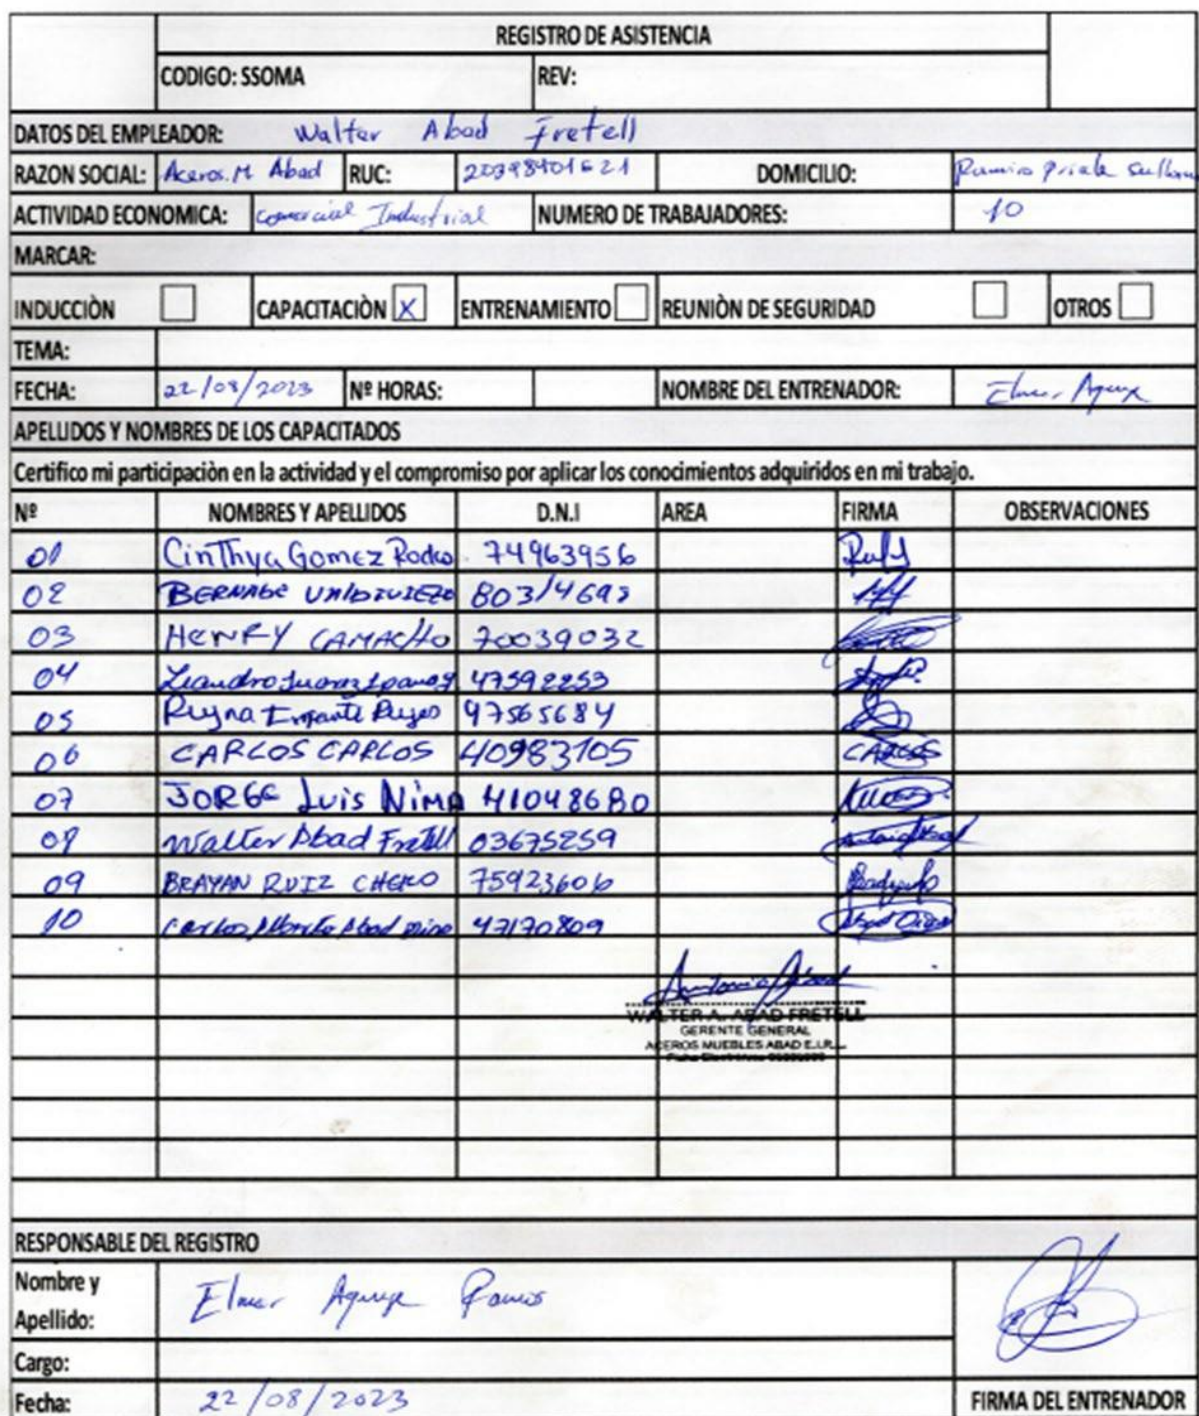 REGISTRO DE ASISTENCIA
CODIGO: SSOMA REV:
DATOS DEL EMPLEADOR: Walter Abad Fretell
RAZON SOCIAL: Aceros.M Abad RUC: DOMICILIO: Ramiro Priale
ACTIVIDAD ECONOMICA: Comercial Industrial NUMERO DE TRABAJADORES: 10
MARCAR:
INDUCCIÒN CAPACITACIÒN X ENTRENAMIENTO REUNIÒN DE SEGURIDAD OTROS
TEMA:
FECHA: 22/08/2023 Nº HORAS: NOMBRE DEL ENTRENADOR: Elmer
APELLIDOS Y NOMBRES DE LOS CAPACITADOS
Certifico mi participaciòn en la actividad y el compromiso por aplicar los conocimientos adquiridos en mi trabajo.
Nº NOMBRES Y APELLIDOS D.N.I AREA FIRMA OBSERVACIONES
01 CinThya Gomez 74963956
02 BERNABE VALDIVIEZO
03 HENRY CAMACHO 70039032
04 Leandro Juarez 47592253
05 Infante 97565684
06 CARLOS CARLOS 40983105 CARLOS
07 JORGE Luis NiMA 41048680
08 Walter Abad Fretell 03675259
09 BRAYAN RUIZ CHERO 75923606
10 Carlos Alberto Abad 47170809
Antonio Abad
WALTER A. ABAD FRETELL
GERENTE GENERAL
ACEROS MUEBLES ABAD E.I.R.L.
RESPONSABLE DEL REGISTRO
Nombre y Apellido: Elmer Ramos
Cargo:
Fecha: 22/08/2023 FIRMA DEL ENTRENADOR